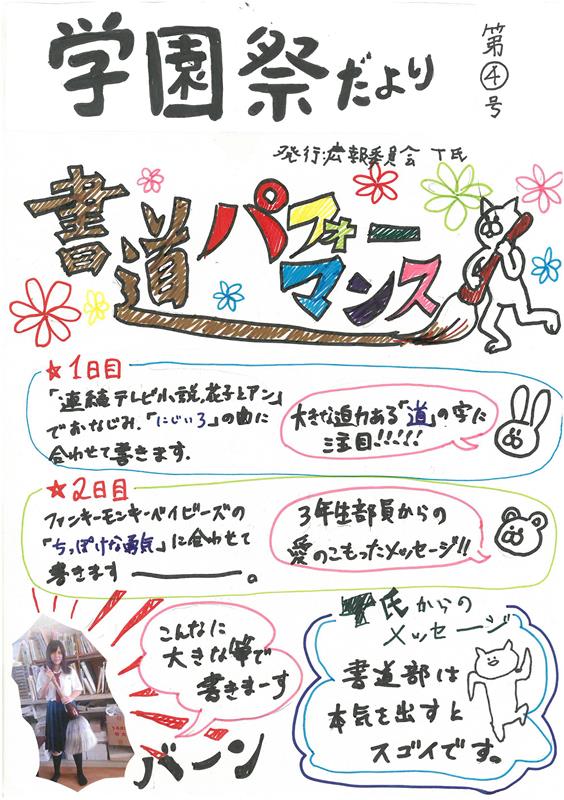 学園祭だより
第④号
発行:広報委員会 T氏
書道パフォーマンス
★1日目
「連続テレビ小説,花子とアン」
でおなじみ、「にじいろ」の曲に
合わせて書きます.
大きな迫力ある「道」の字に
注目!!!!!
★2日目
ファンキーモンキーベイビーズの
「ちっぽけな勇気」に合わせて
書きます ー。
3年生部員からの
愛のこもったメッセージ!!
こんなに
大きな筆で
書きまーす
バーン
T氏からの
メッセージ
書道部は
本気を出すと
スゴイです。